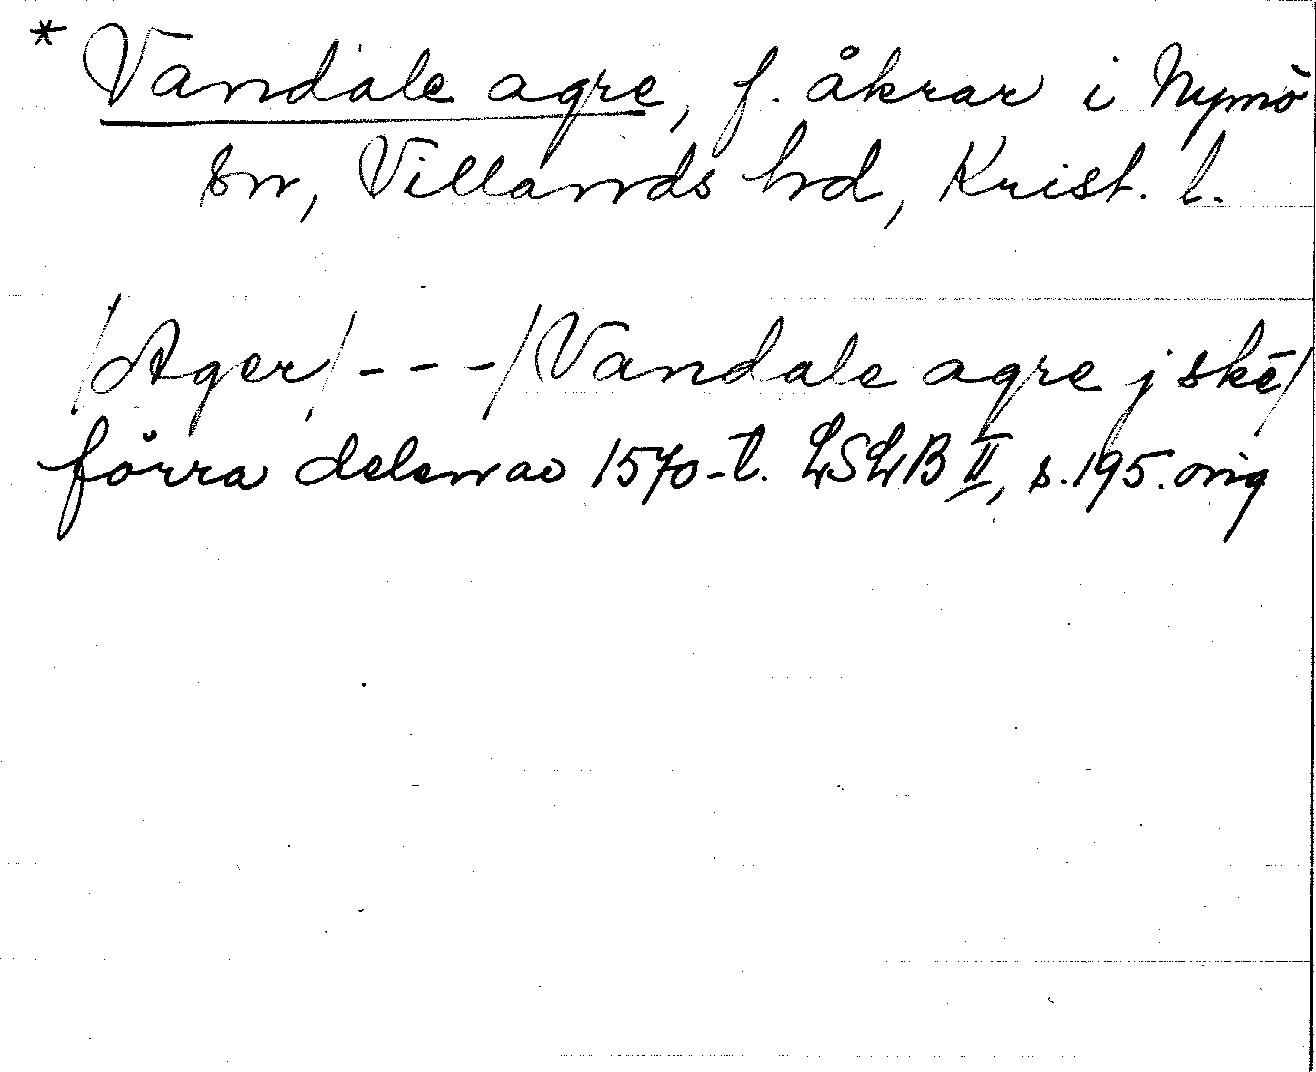 * Vandale agre, f. åkrar i Nymö
sn, Villands hd, Krist. l.
/Ager/ - - - /Vandale agre j skē/
förra delen av 1570-t. LSLB II, s. 195. orig